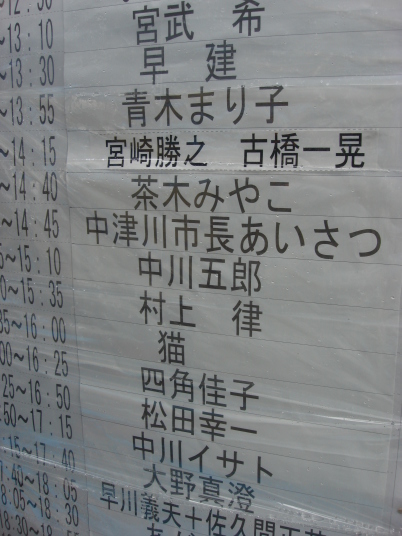 ~13：10 宮武 希
~13：30 早 建
~13：55 青木まり子
~14：15 宮崎勝之 古橋一晃
~14：40 茶木みやこ
~14：45 中津川市長あいさつ
~15：10 中川五郎
~15：35 村上 律
~16：00 猫
~16：25 四角佳子
~16：50 松田幸一
~17：15 中川イサト
~17：40 大野真澄
~18：05 早川義夫＋佐久間正英
~18：30